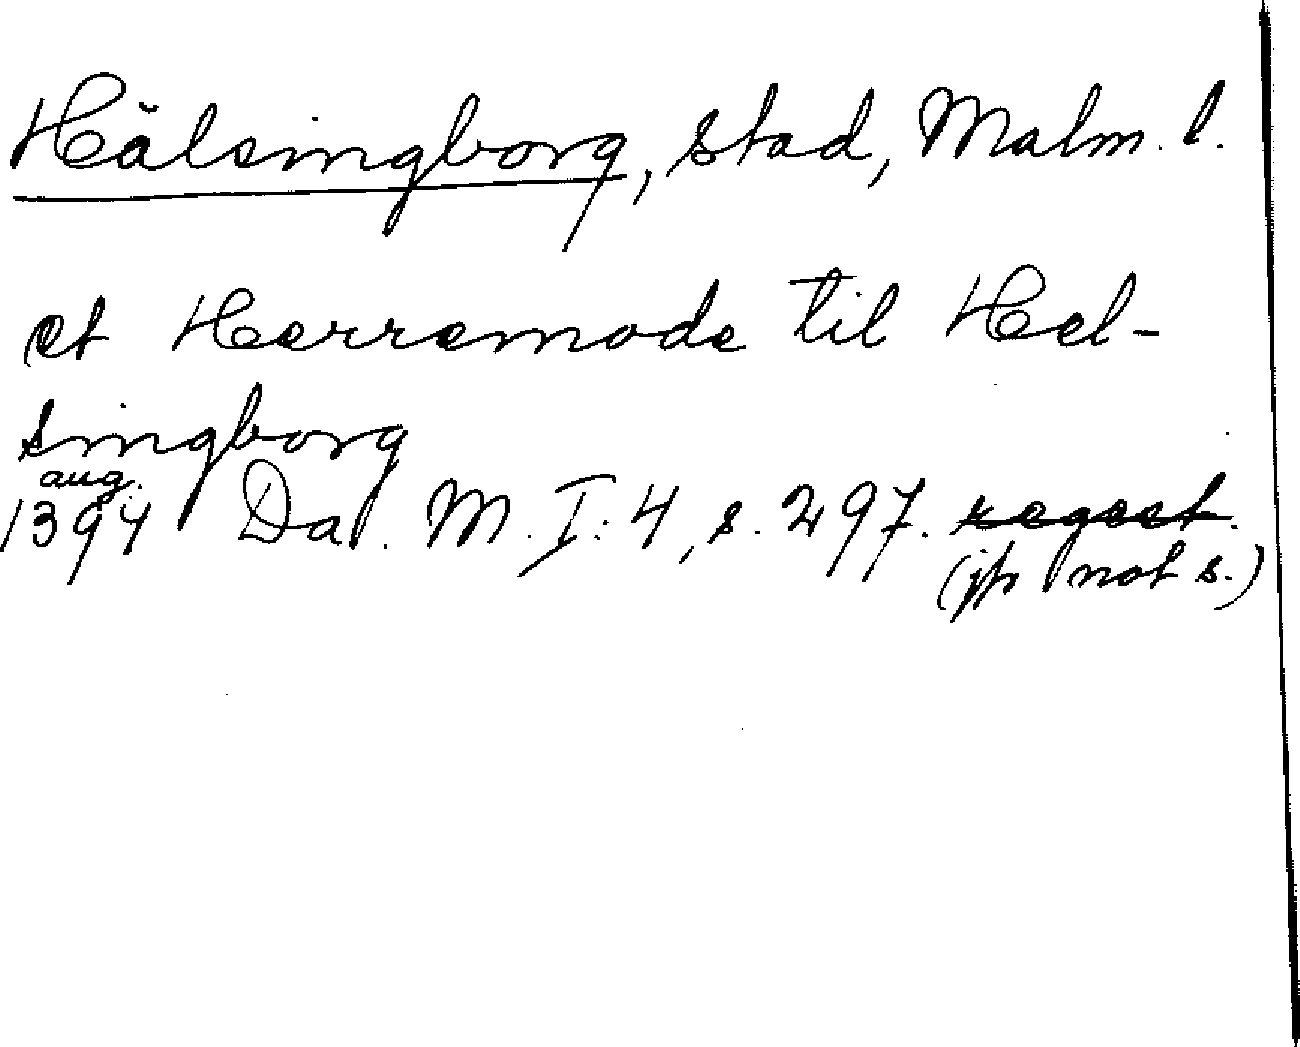 Hälsingborg, stad, Malm. l.
et Herremode til Hel-
singborg
aug.
1394 Da. M. I: 4, s. 297. regest.
(jfr not s.)